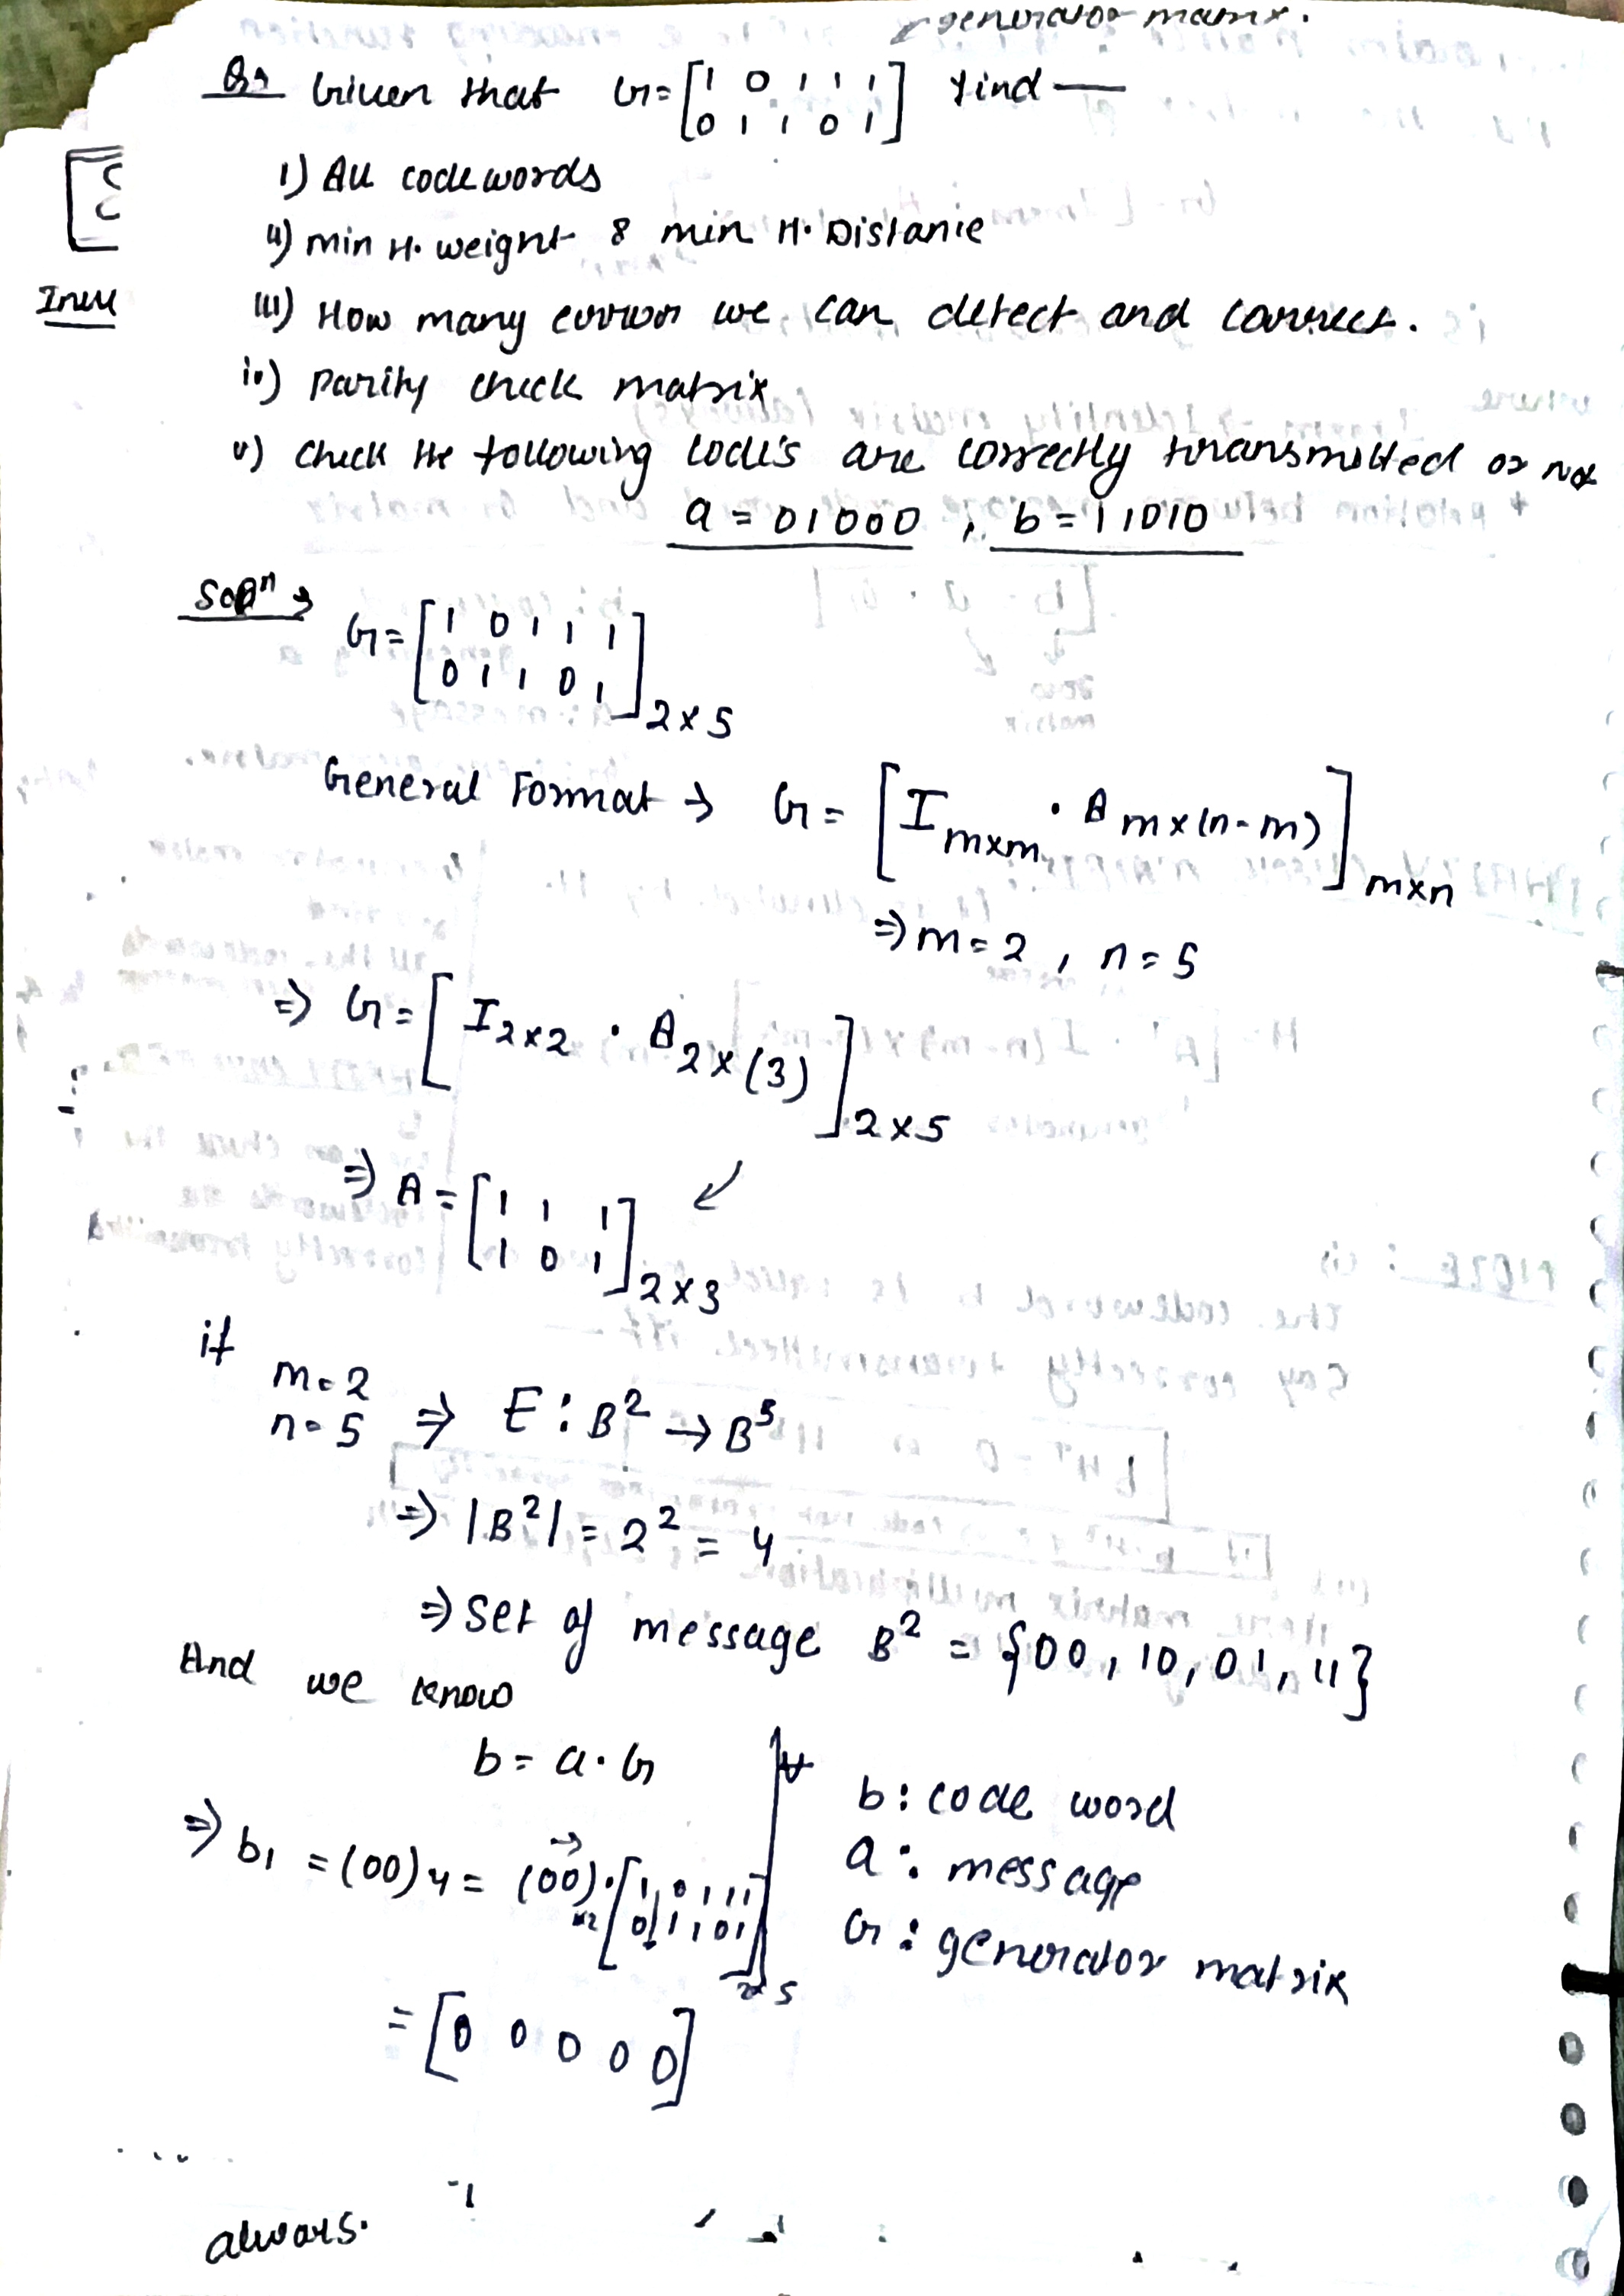 generator matrix.
Q. Given that G = [1 0 1 1 1 find —
0 1 1 0 1]
i) All codewords
ii) min H. weight & min H. Distance
iii) How many error we can detect and correct.
iv) parity check matrix
v) check the following code's are correctly transmitted or not
a = 01000 , b = 11010
Solⁿ → G = [1 0 1 1 1
0 1 1 0 1] 2×5
General Format → G = [I m×m . A m×(n-m)] m×n
⇒ m = 2 , n = 5
⇒ G = [I 2×2 . A 2×(3)] 2×5
⇒ A = [1 1 1
1 0 1] 2×3
if
m = 2
n = 5 ⇒ E : B² → B⁵
⇒ |B²| = 2² = 4
⇒ set of message B² = {00, 10, 01, 11}
And we know
b = a . G
b : code word
a : message
G : generator matrix
⇒ b₁ = (00)G = (00) . [1 0 1 1 1
0 1 1 0 1] 2×5
= [0 0 0 0 0]
always.